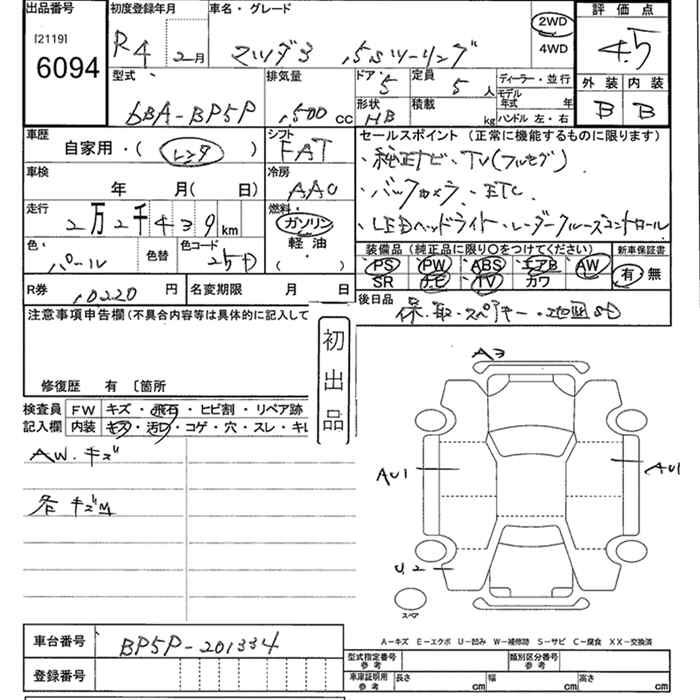 出品番号 初度登録年月 車名・グレード 評価点
[2119] 6094 R4 2月 マツダ3 1.5Sツーリング 2WD 4WD 4.5
型式 排気量 ドア・5 定員 5人 ディーラー・並行 外装 内装
6BA-BP5P 1,500 cc 形状 HB 積載 kg モデル年式 年 ハンドル 左・右 B B
車歴 自家用・(レンタ) シフト FAT セールスポイント (正常に機能するものに限ります)
・純正ナビ・TV(フルセグ)
車検 年 月( 日) 冷房 AAC ・バックカメラ・ETC
走行 2万2千439km 燃料・ ガソリン 軽油 ( ) ・LEDヘッドライト・レーダークルーズコントロール
色・ パール 色替 色コード 25D 装備品 (純正品に限り○をつけてください) 新車保証書
PS PW ABS エアB AW 有・無
SR ナビ TV カワ
R券 10220 円 名変期限 月 日 後日品 保・取・スペアキー・地図SD
注意事項申告欄(不具合内容等は具体的に記入して
初出品
修復歴 有 〔箇所
検査員 FW キズ・飛石・ヒビ割・リペア跡
記入欄 内装 キズ・汚レ・コゲ・穴・スレ・キレ
AW.キズ
各キズM
A3
AU1
AU1
U2
スペア
A-キズ E-エクボ U-凹み W-補修跡 S-サビ C-腐食 XX-交換済
車台番号 BP5P-201334
型式指定番号 参考 類別区分番号 参考
登録番号 車庫証明用 参考 長さ cm 幅 cm 高さ cm